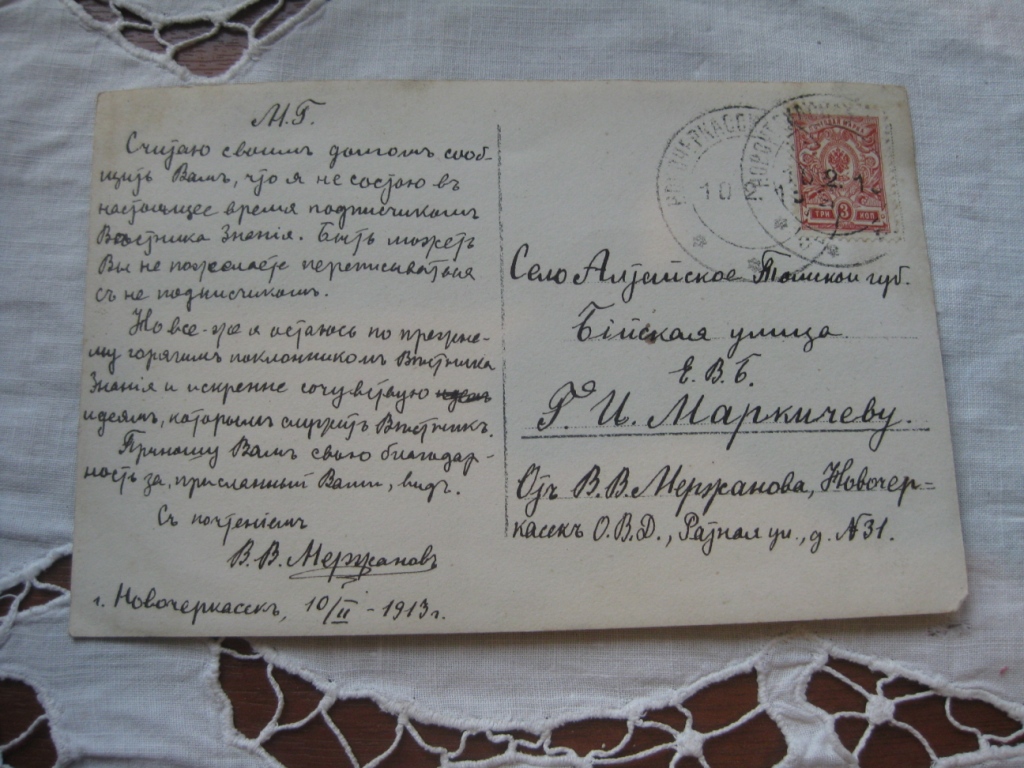 М.Г.
Считаю своимъ долгомъ сооб-
щить Вамъ, что я не состою въ
настоящее время подписчикомъ
Вѣстника Знанія. Быть можетъ
Вы не пожелаете переписываться
съ не подписчикомъ.
Но все-же я остаюсь по прежне-
му горячимъ поклонникомъ Вѣстника
Знанія и искренне сочувствую
идеямъ, которымъ служитъ Вѣстникъ.
Приношу Вамъ свою благодар-
ность за, присланный Вами, видъ.
Съ почтеніемъ
В.В. Мержановъ
г. Новочеркасскъ, 10/II - 1913 г.
НОВОЧЕРКАССК
10
2 1
ТРИ 3 КОП
Село Алтайское Томской губ.
Бійская улица
Е.В.Б.
Г. И. Маркичеву.
Отъ В.В. Мержанова, Новочер=
касскъ О.В.Д., Ратная ул., д. №31.